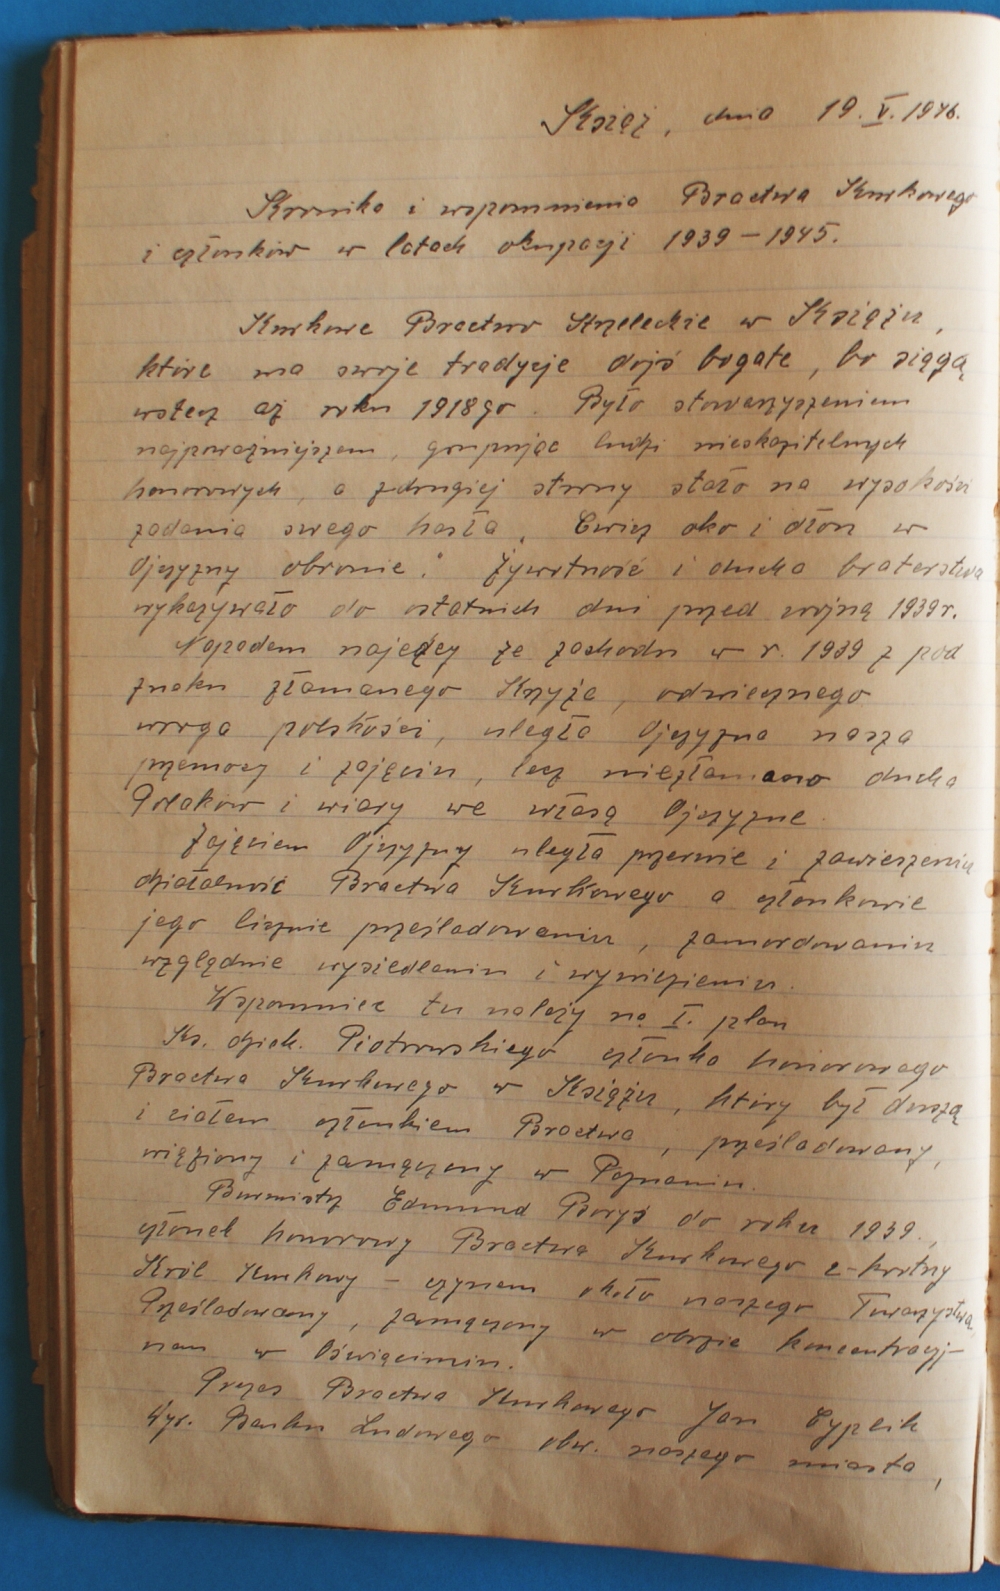 Książ, dnia 19.V.1946.
Kronika i wspomnienia Bractwa Kurkowego
i członków w latach okupacji 1939 – 1945.
Kurkowe Bractwo Strzeleckie w Książu,
które ma swoje tradycje dojś bogate, bo siągą
wstecz aż roku 1918go. Było stowarzyszeniem
najpoważniejszem, grupując ludzi nieskazitelnych
honorowych, a zdrugiej strony stało na wysokości
zadania swego hasła, Ćwicz oko i dłoń w
Ojczyzny obronie." Żywotność i ducha braterstwa
wykazywało do ostatnich dni przed wojną 1939r.
Napadem najeźcy ze zachodu w r. 1939 z pod
znaku złamanego Krzyża, odwiecznego
wroga polskości, uległa Ojczyzna nasza
przemocy i zajęciu, lecz niezłamano ducha
Polaków i wiary we własą Ojczyznę.
Zajęciem Ojczyzny uległa przerwie i zawieszeniu
działalność Bractwa Kurkowego a członkowie
jego licznie prześladowaniu, zamordowaniu
względnie wysiedleniu i wywiezieniu.
Wspomnieć tu należy na I. plan
Ks. dziek. Piotrowskiego członka honorowego
Bractwa Kurkowego w Książu, który był duszą
i ciałem członkiem Bractwa, prześladowany,
więziony i zamęczony w Poznaniu.
Burmistrz Edmund Boryś do roku 1939.,
członek honorowy Bractwa Kurkowego 2-krotny
Król Kurkowy – czynem około naszego Towarzystwa
Prześladowany, zamęczony w obozie koncentracyj-
nem w Oświęcimiu.
Prezes Bractwa Kurkowego Jan Cyplik
Dyr. Banku Ludowego obw. naszego miasta,